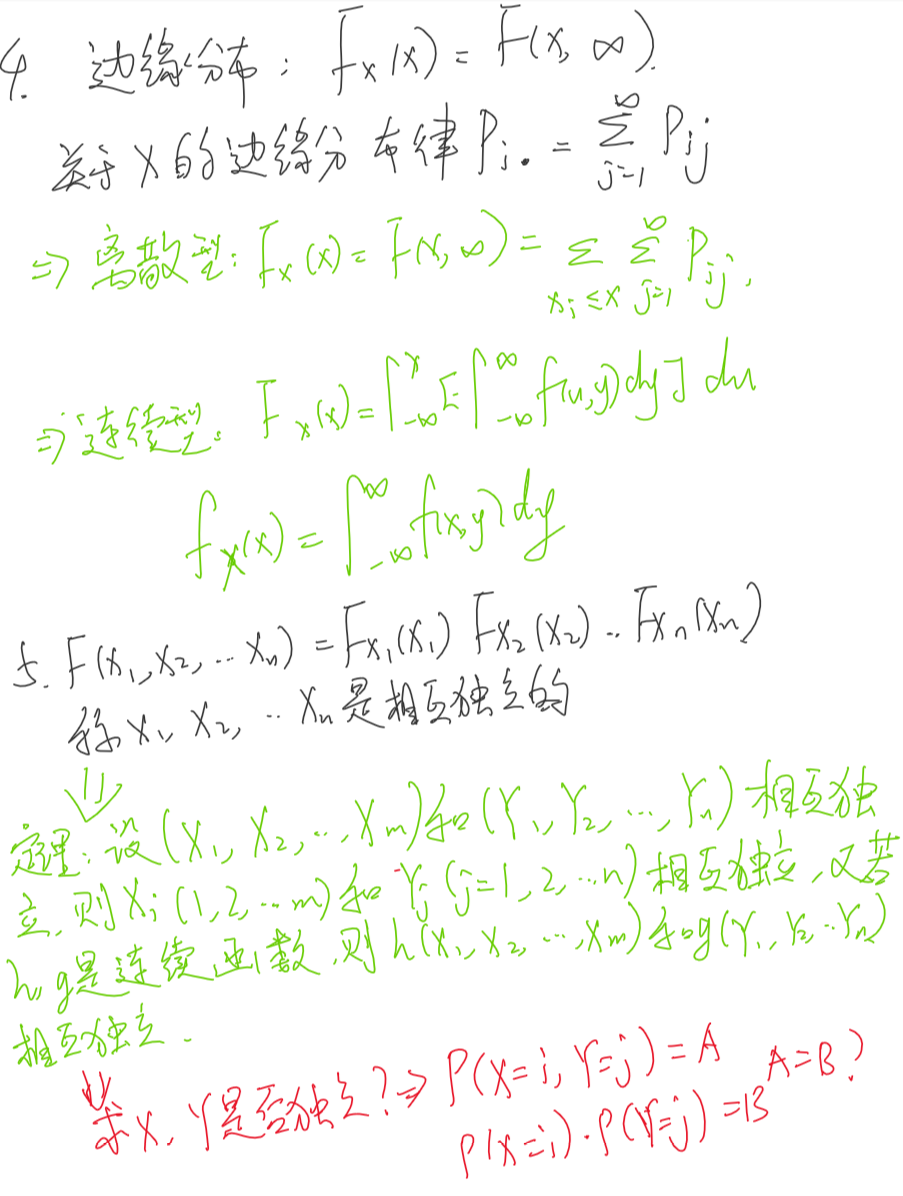 4. 边缘分布: F_X(x) = F(x, ∞).
关于X的边缘分布律 P_i. = ∑_{j=1}^{∞} P_ij
⇒ 离散型: F_X(x) = F(x, ∞) = ∑_{x_i≤x} ∑_{j=1}^{∞} P_ij.
⇒ 连续型: F_X(x) = ∫_{-∞}^{x} [∫_{-∞}^{∞} f(u,y)dy] du
f_X(x) = ∫_{-∞}^{∞} f(x,y)dy
5. F(x_1, x_2, … x_n) = F_{X_1}(x_1) F_{X_2}(x_2) .. F_{X_n}(x_n)
称X_1, X_2, .. X_n是相互独立的
⇓
定理: 设(X_1, X_2, …, X_m)和(Y_1, Y_2, …, Y_n)相互独
立, 则X_i (1,2, … m)和Y_j (j=1, 2, … n)相互独立, 又若
h, g是连续函数, 则h(X_1, X_2, …, X_m)和g(Y_1, Y_2, .. Y_n)
相互独立.
⇓
求X, Y是否独立? ⇒ P(X=i, Y=j) = A A=B?
P(X=i)·P(Y=j) = B